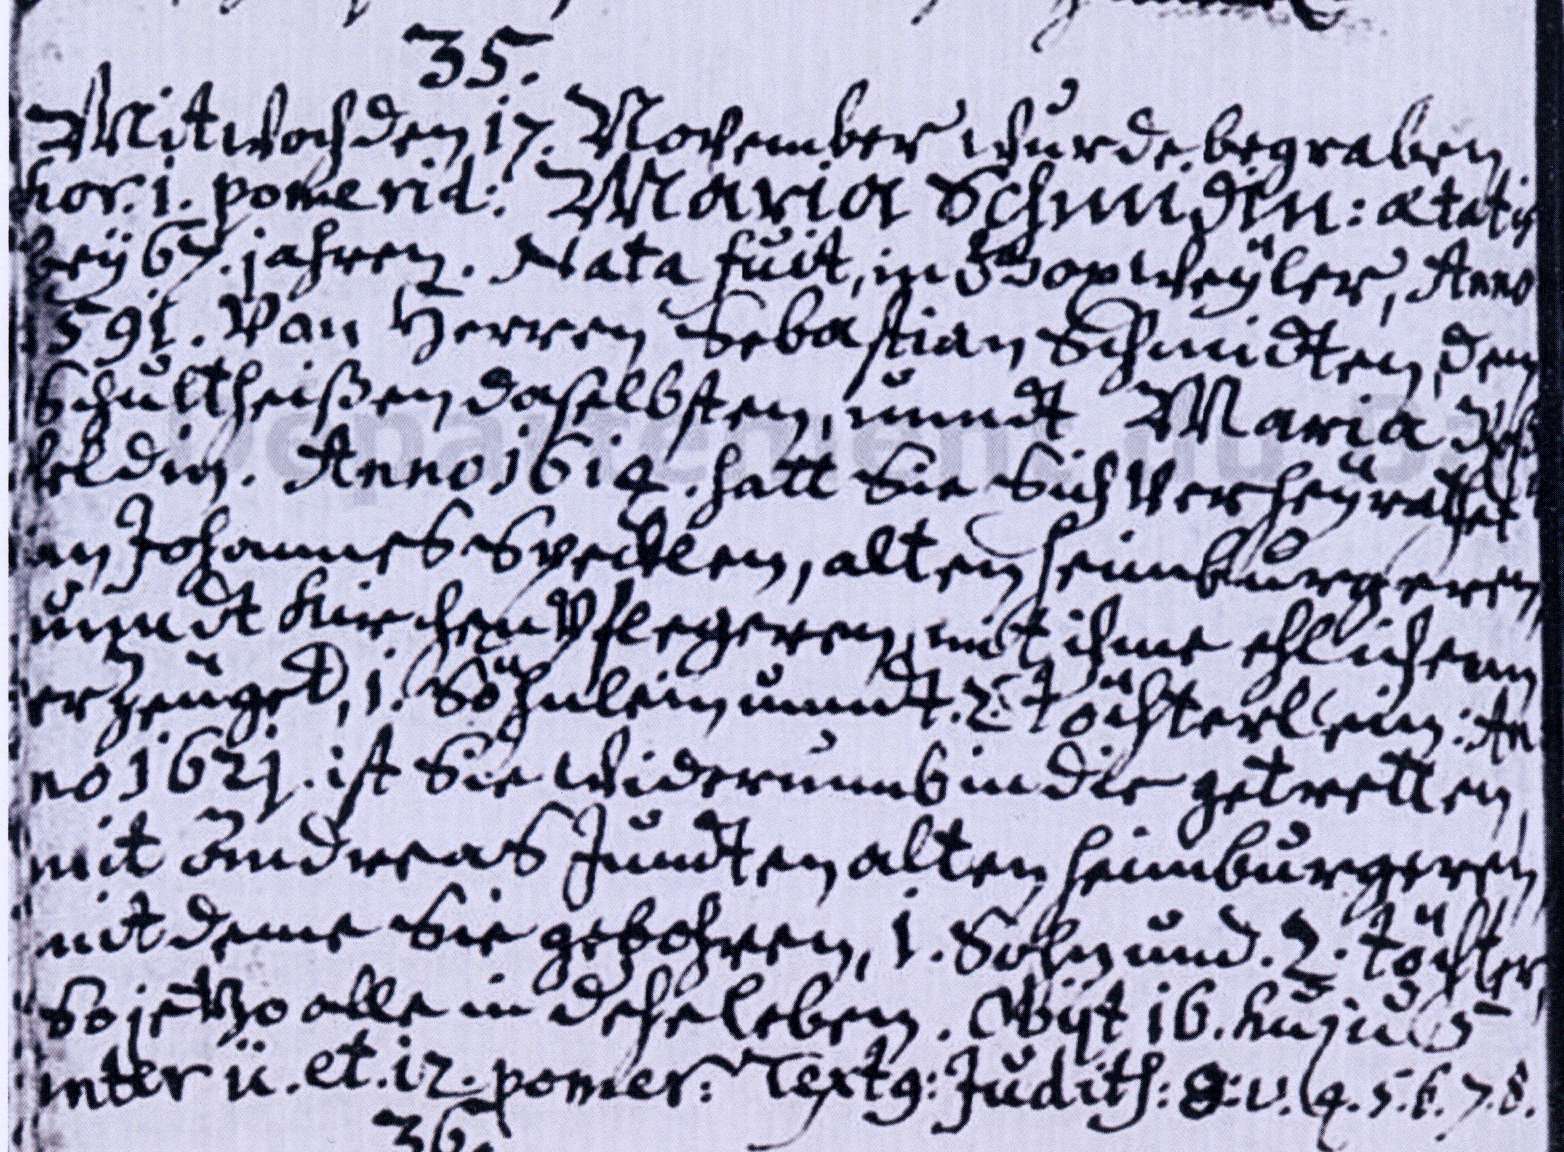 35.
Mitwoch den 17. November wurde begraben
hor. 1. pomerid: Maria Schmidin: ætatis
beÿ 67. jahren. Nata fuit, in Boxweÿler, Anno
1591. Von Herren Sebastian Schmidten, dem
Schultheißen daselbsten, unndt Maria
feldin. Anno 1614. hatt Sie Sich verheÿrathet
an Johannes Specklen, alten heimburgeren
unndt Kirchenpflegeren, mit ihme ehlichenn
erzeuget, 1. Söhnlein unndt. 2. Töchterlein: An
no 1621. ist Sie widerumb in die getretten
mit Andreas Jundten alten heimburgeren
mit deme Sie gebohren, 1. Sohn und. 2. Töchter,
So jetzo alle in der Ehe leben. Obijt 16. hujus
inter 11. et. 12. pomer: Text9: Judith: 8: v. 4. 5. 6. 7. 8.
36.